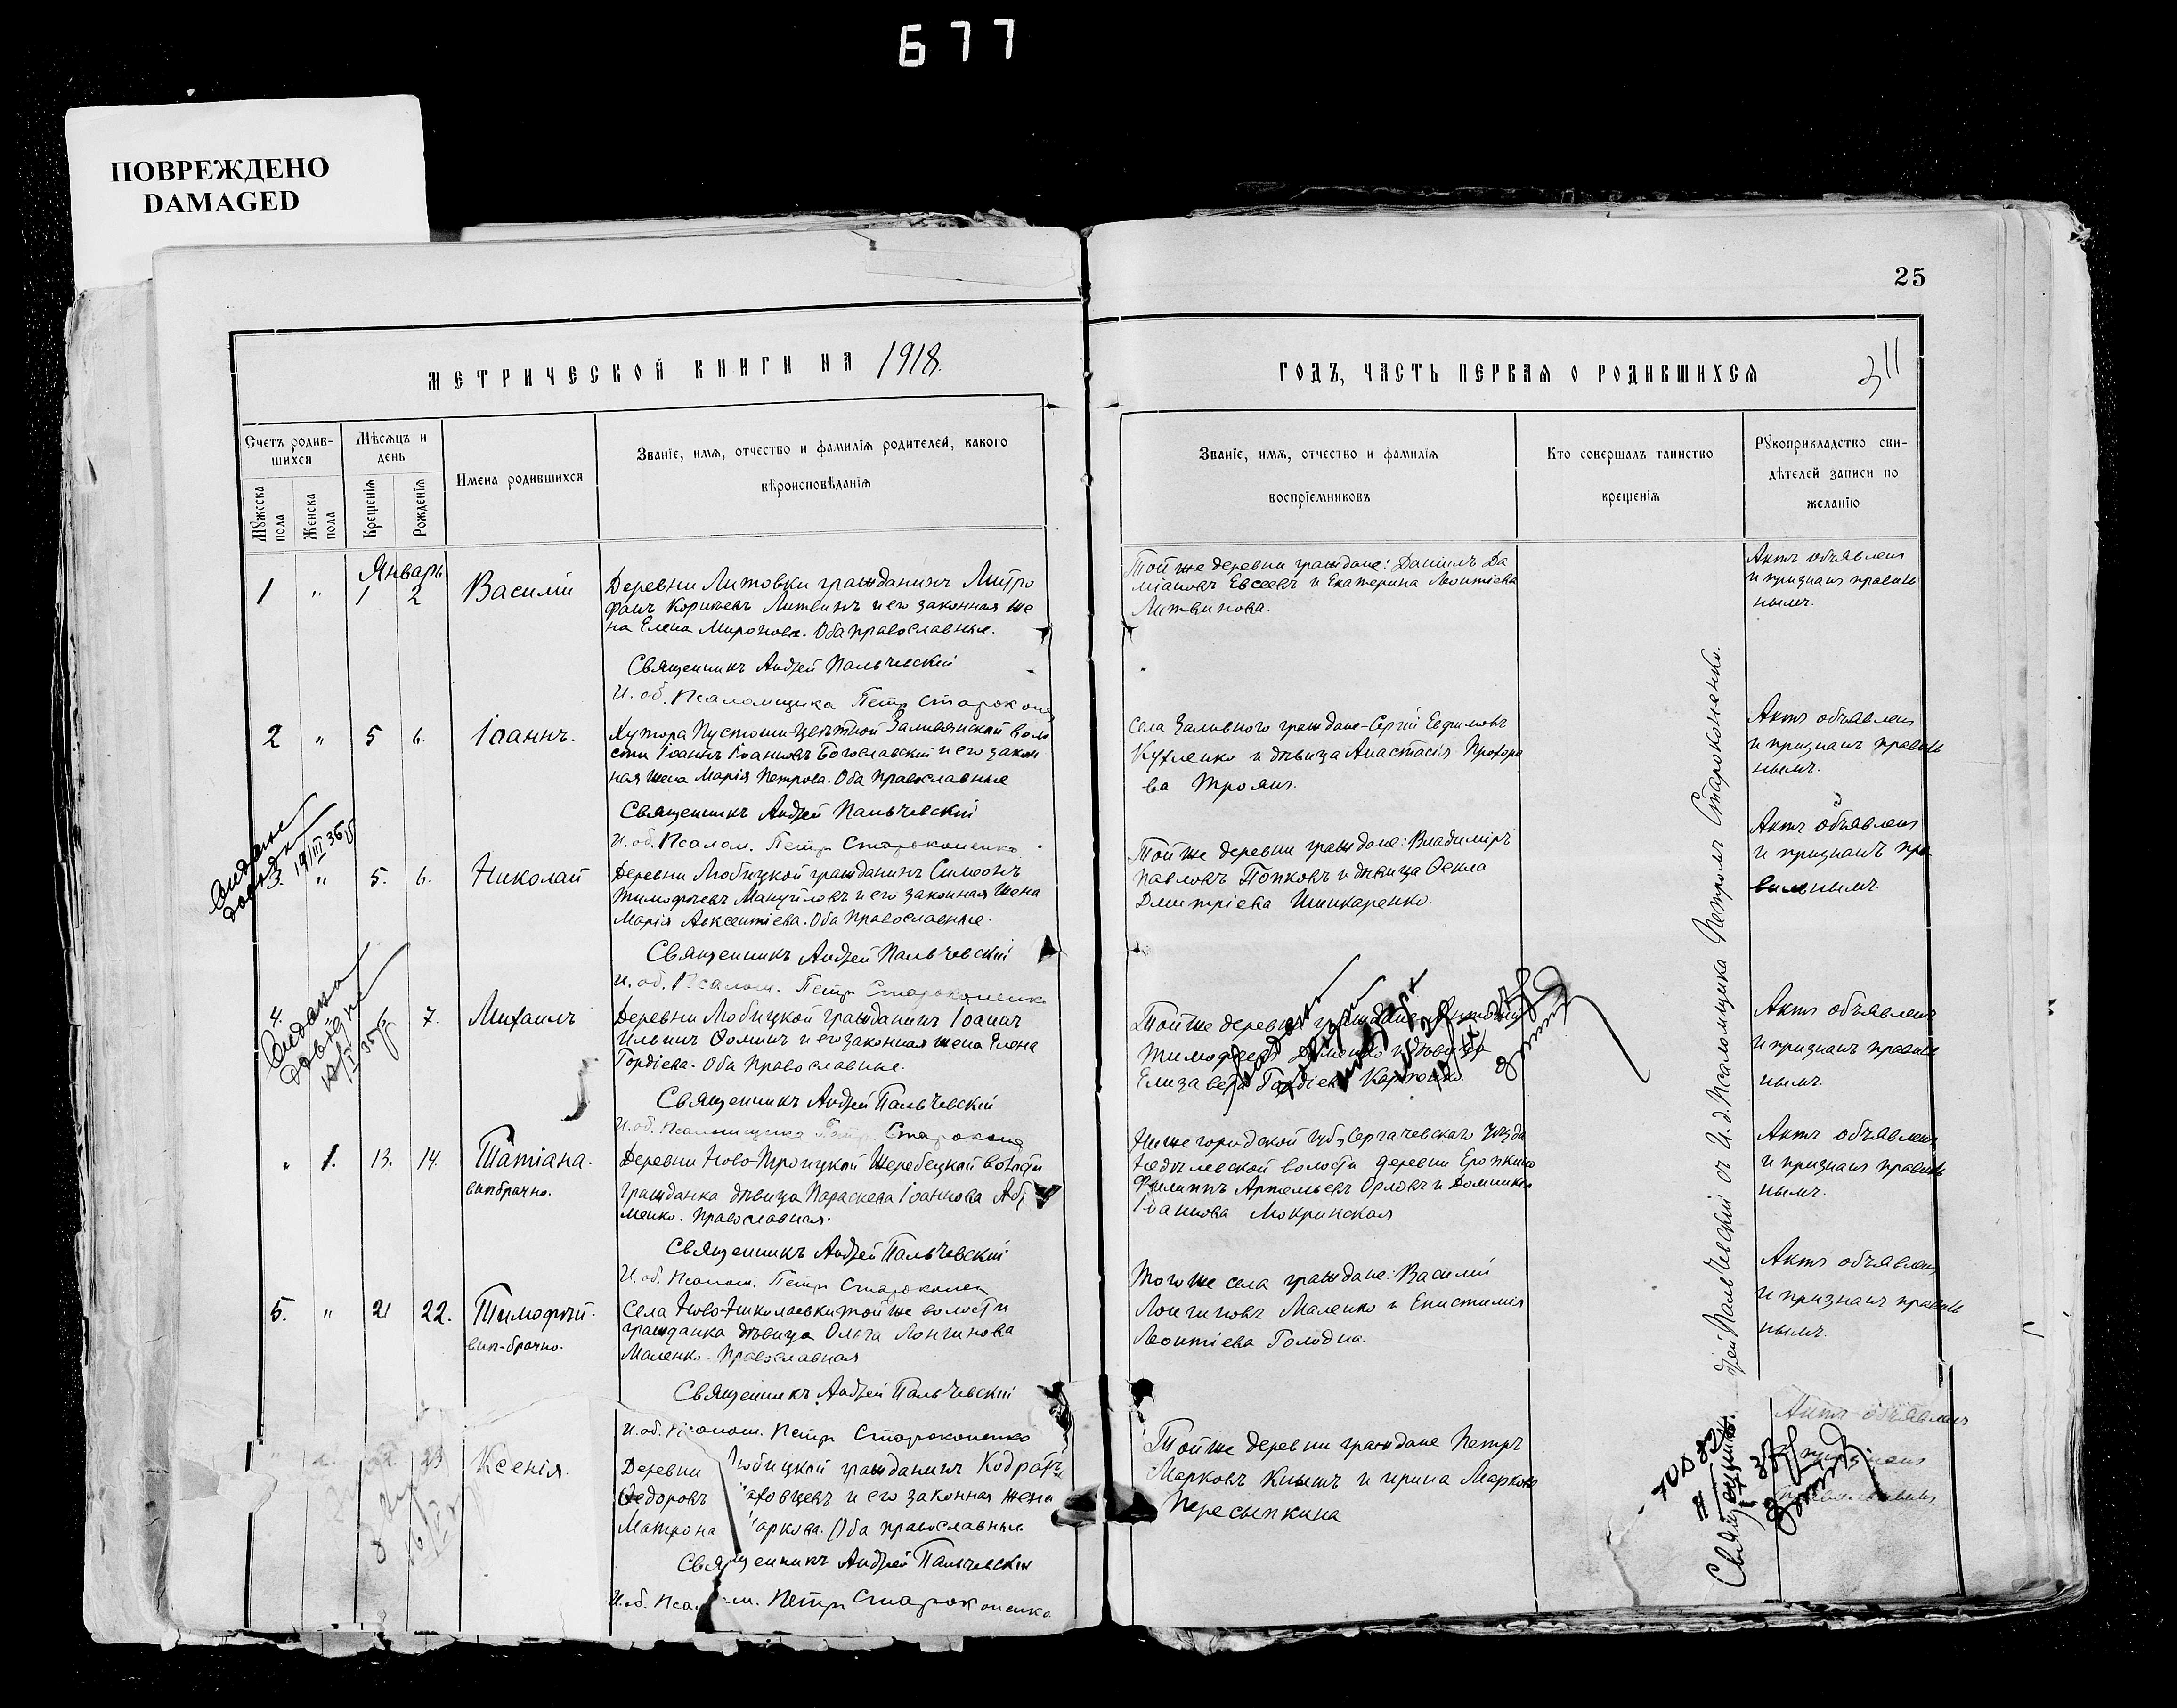 677
ПОВРЕЖДЕНО
DAMAGED
25
МЕТРИЧЕСКОЙ КНИГИ НА 1918.
ГОДЪ, ЧАСТЬ ПЕРВАЯ О РОДИВШИХСЯ
311
Счетъ родив-
шихся
Мѣсяцъ и
день
Мужеска
пола
Женска
пола
Крещенія
Рожденія
Имена родившихся
Званіе, имя, отчество и фамилія родителей, какого
вѣроисповѣданія
Званіе, имя, отчество и фамилія
воспріемниковъ
Кто совершалъ таинство
крещенія
Рукоприкладство сви-
дѣтелей записи по
желанію
Январь
1 " 1 2 Василій
Деревни Литовки гражданинъ Митро
фанъ Корнѣевъ Литвинъ и его законная же
на Елена Миронова. Оба православные.
Священникъ Андрей Пальчевскій
И. об. Псаломщика Петръ Старокопе
Той же деревни граждане: Даніилъ Да
міановъ Евсеевъ и Екатерина Леонтіева
Литвинова.
Актъ объявленъ
и признанъ правиль
нымъ.
2 " 5 6. Іоаннъ.
Хутора Пустоши-Цвѣтной Заливянской воло
сти Іоаннъ Іоанновъ Богославскій и его закон
ная жена Марія Петрова. Оба православные
Священникъ Андрей Пальчевскій
И. об. Псалом. Петръ Старокопенко
Села Заливного граждане-Сергій Евфимовъ
Кухленко и дѣвица Анастасія Прохоро
ва Троянъ.
Актъ объявленъ
и признанъ правиль
нымъ.
3. " 5. 6. Николай
Видане
19/III 35
Деревни Любицкой гражданинъ Симеонъ
Тимофѣевъ Мануйловъ и его законная жена
Марія Авксентіева. Оба православные.
Священникъ Андрей Пальчевскій
И. об. Псалом. Петръ Старокопенко
Той же деревни граждане: Владиміръ
Павловъ Попковъ и дѣвица Ѳекла
Дмитріева Шинкаренко.
Актъ объявленъ
и признанъ пра
вильнымъ.
4. 7. Михаилъ
Видана
довідка
Деревни Любицкой гражданинъ Іоаннъ
Ильинъ Ѳоминъ и его законная жена Елена
Гордіева. Оба православные.
Священникъ Андрей Пальчевскій
И. об. Псаломщика Петръ Старокопе
Той же деревни граждане
Елизавета Гордіева
Актъ объявленъ
и признанъ правиль
нымъ.
" 1. 13. 14. Татіана.
внѣбрачно.
Деревни Ново-Троицкой Жеребецкой волости
гражданка дѣвица Параскева Іоаннова
менко. Православная.
Священникъ Андрей Пальчевскій
И. об. Псалом. Петръ Старокопен
Нижегородской губ., Сергачевскаго уѣзда
волости деревни Еропкино
Филиппъ Артемьевъ Орловъ и Домникія
Іоаннова Мокринская
Актъ объявленъ
и признанъ правиль
нымъ.
5. " 21 22. Тимофѣй.
внѣ-брачно.
Села Ново-Николаевки той же волости
гражданка дѣвица Ольга Лонгинова
Маленко. Православная
Священникъ Андрей Пальчевскій
И. об. Псалом. Петръ Старокопенко
Того же села граждане: Василій
Лонгиновъ Маленко и Епистимія
Леонтіева Голодна.
Актъ объявленъ
и признанъ правиль
нымъ.
23 Ксенія.
Деревни Любицкой гражданинъ Кодратъ
Ѳедоровъ и его законная жена
Матрона Маркова. Оба православные
Священникъ Андрей Пальчевскій
И. об. Псалом. Петръ Старокопенко
Той же деревни граждане Петръ
Марковъ Кнышъ и Ирина Маркова
Пересыпкина
Актъ объявленъ
Священникъ Андрей Пальчевскій съ И. д. Псаломщика Петромъ Старокопенко.